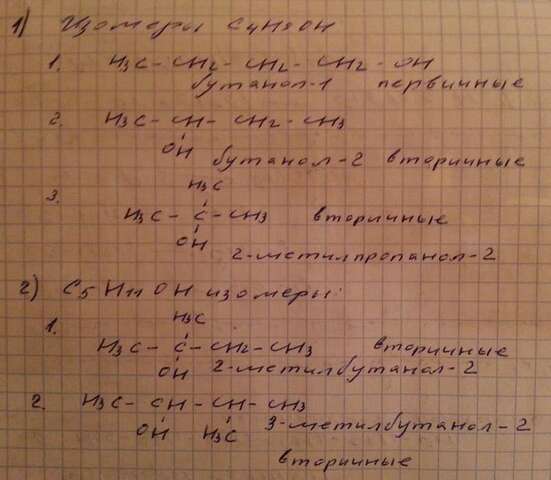 1) Изомеры C4H9OH
1. H3C - CH2 - CH2 - CH2 - OH
бутанол-1 первичные
2. H3C - CH - CH2 - CH3
OH бутанол-2 вторичные
H3C
3.
H3C - C - CH3 вторичные
OH
2-метилпропанол-2
2) C5H11OH изомеры:
H3C
1.
H3C - C - CH2 - CH3 вторичные
OH 2-метилбутанол-2
2. H3C - CH - CH - CH3
OH H3C 3-метилбутанол-2
вторичные